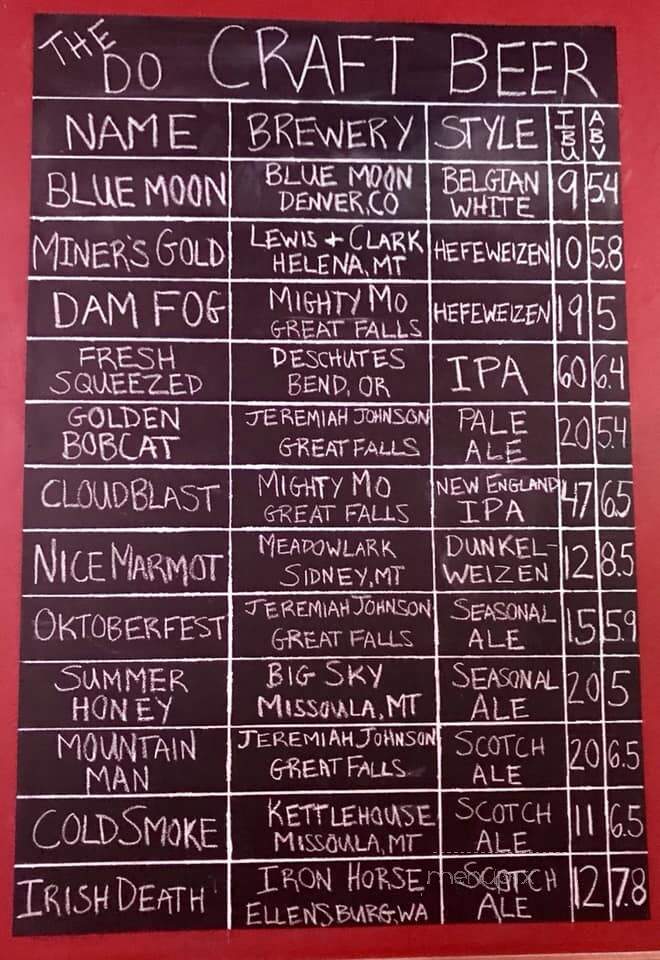 THE DO CRAFT BEER
NAME BREWERY STYLE IBU ABV
BLUE MOON BLUE MOON DENVER, CO BELGIAN WHITE 9 5.4
MINER'S GOLD LEWIS + CLARK HELENA, MT HEFEWEIZEN 10 5.8
DAM FOG MIGHTY MO GREAT FALLS HEFEWEIZEN 19 5
FRESH SQUEEZED DESCHUTES BEND, OR IPA 60 6.4
GOLDEN BOBCAT JEREMIAH JOHNSON GREAT FALLS PALE ALE 20 5.4
CLOUDBLAST MIGHTY MO GREAT FALLS NEW ENGLAND IPA 47 6.5
NICE MARMOT MEADOWLARK SIDNEY, MT DUNKEL-WEIZEN 12 8.5
OKTOBERFEST JEREMIAH JOHNSON GREAT FALLS SEASONAL ALE 15 5.9
SUMMER HONEY BIG SKY MISSOULA, MT SEASONAL ALE 20 5
MOUNTAIN MAN JEREMIAH JOHNSON GREAT FALLS SCOTCH ALE 20 6.5
COLD SMOKE KETTLEHOUSE MISSOULA, MT SCOTCH ALE 11 6.5
IRISH DEATH IRON HORSE ELLENSBURG, WA SCOTCH ALE 12 7.8